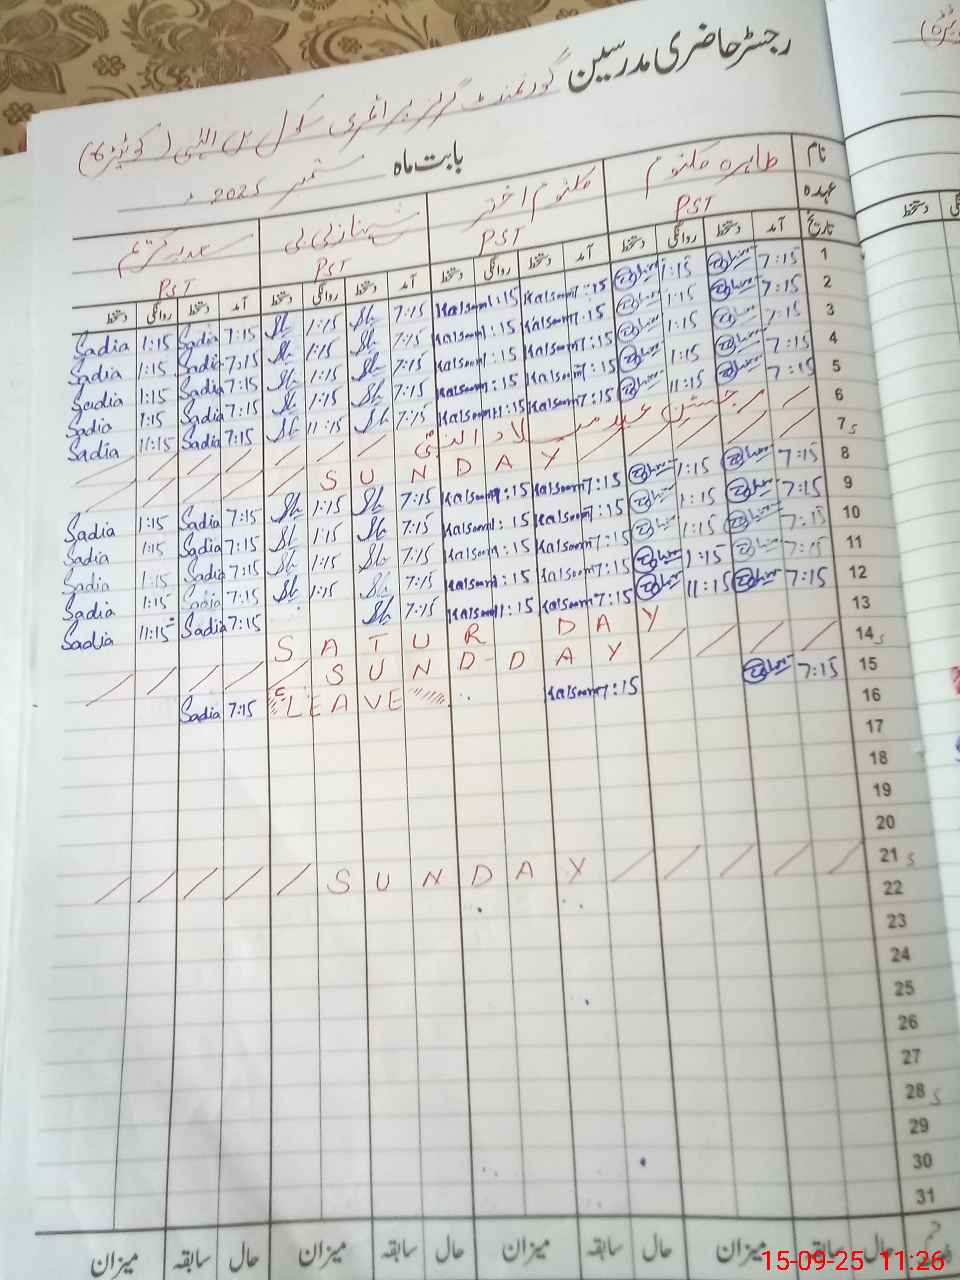 رجسٹر حاضری مدرسین
گورنمنٹ گرلز پرائمری سکول
بابت ماہ ستمبر 2025ء
نام طاہرہ کلثوم کلثوم اختر شہناز بی بی سعدیہ کریم
عہدہ PST PST PST PST
تاریخ آمد دستخط روانگی دستخط آمد دستخط روانگی دستخط آمد دستخط روانگی دستخط آمد دستخط روانگی دستخط
1 7:15 1:15 7:15 Kalsoom 1:15 Kalsoom 7:15 Sh 1:15 Sh 7:15 Sadia 1:15 Sadia
2 7:15 1:15 7:15 Kalsoom 1:15 Kalsoom 7:15 Sh 1:15 Sh 7:15 Sadia 1:15 Sadia
3 7:15 1:15 7:15 Kalsoom 1:15 Kalsoom 7:15 Sh 1:15 Sh 7:15 Sadia 1:15 Sadia
4 7:15 1:15 7:15 Kalsoom 1:15 Kalsoom 7:15 Sh 1:15 Sh 7:15 Sadia 1:15 Sadia
5 7:15 11:15 7:15 Kalsoom 11:15 Kalsoom 7:15 Sh 11:15 Sh 7:15 Sadia 11:15 Sadia
6 جشن عید میلاد النبیؐ
7 S SUNDAY
8 7:15 1:15 7:15 Kalsoom 1:15 Kalsoom 7:15 Sh 1:15 Sh 7:15 Sadia 1:15 Sadia
9 7:15 1:15 7:15 Kalsoom 1:15 Kalsoom 7:15 Sh 1:15 Sh 7:15 Sadia 1:15 Sadia
10 7:15 1:15 7:15 Kalsoom 1:15 Kalsoom 7:15 Sh 1:15 Sh 7:15 Sadia 1:15 Sadia
11 7:15 1:15 7:15 Kalsoom 1:15 Kalsoom 7:15 Sh 1:15 Sh 7:15 Sadia 1:15 Sadia
12 7:15 11:15 7:15 Kalsoom 11:15 Kalsoom 7:15 Sh 7:15 Sadia 11:15 Sadia
13 SATUR DAY
14 S SUND DAY
15 7:15 7:15 Kalsoom LEAVE 7:15 Sadia
16
17
18
19
20
21 S SUNDAY
22
23
24
25
26
27
28 S
29
30
31
حال سابقہ میزان حال سابقہ میزان حال سابقہ میزان حال سابقہ میزان
15-09-25 11:26